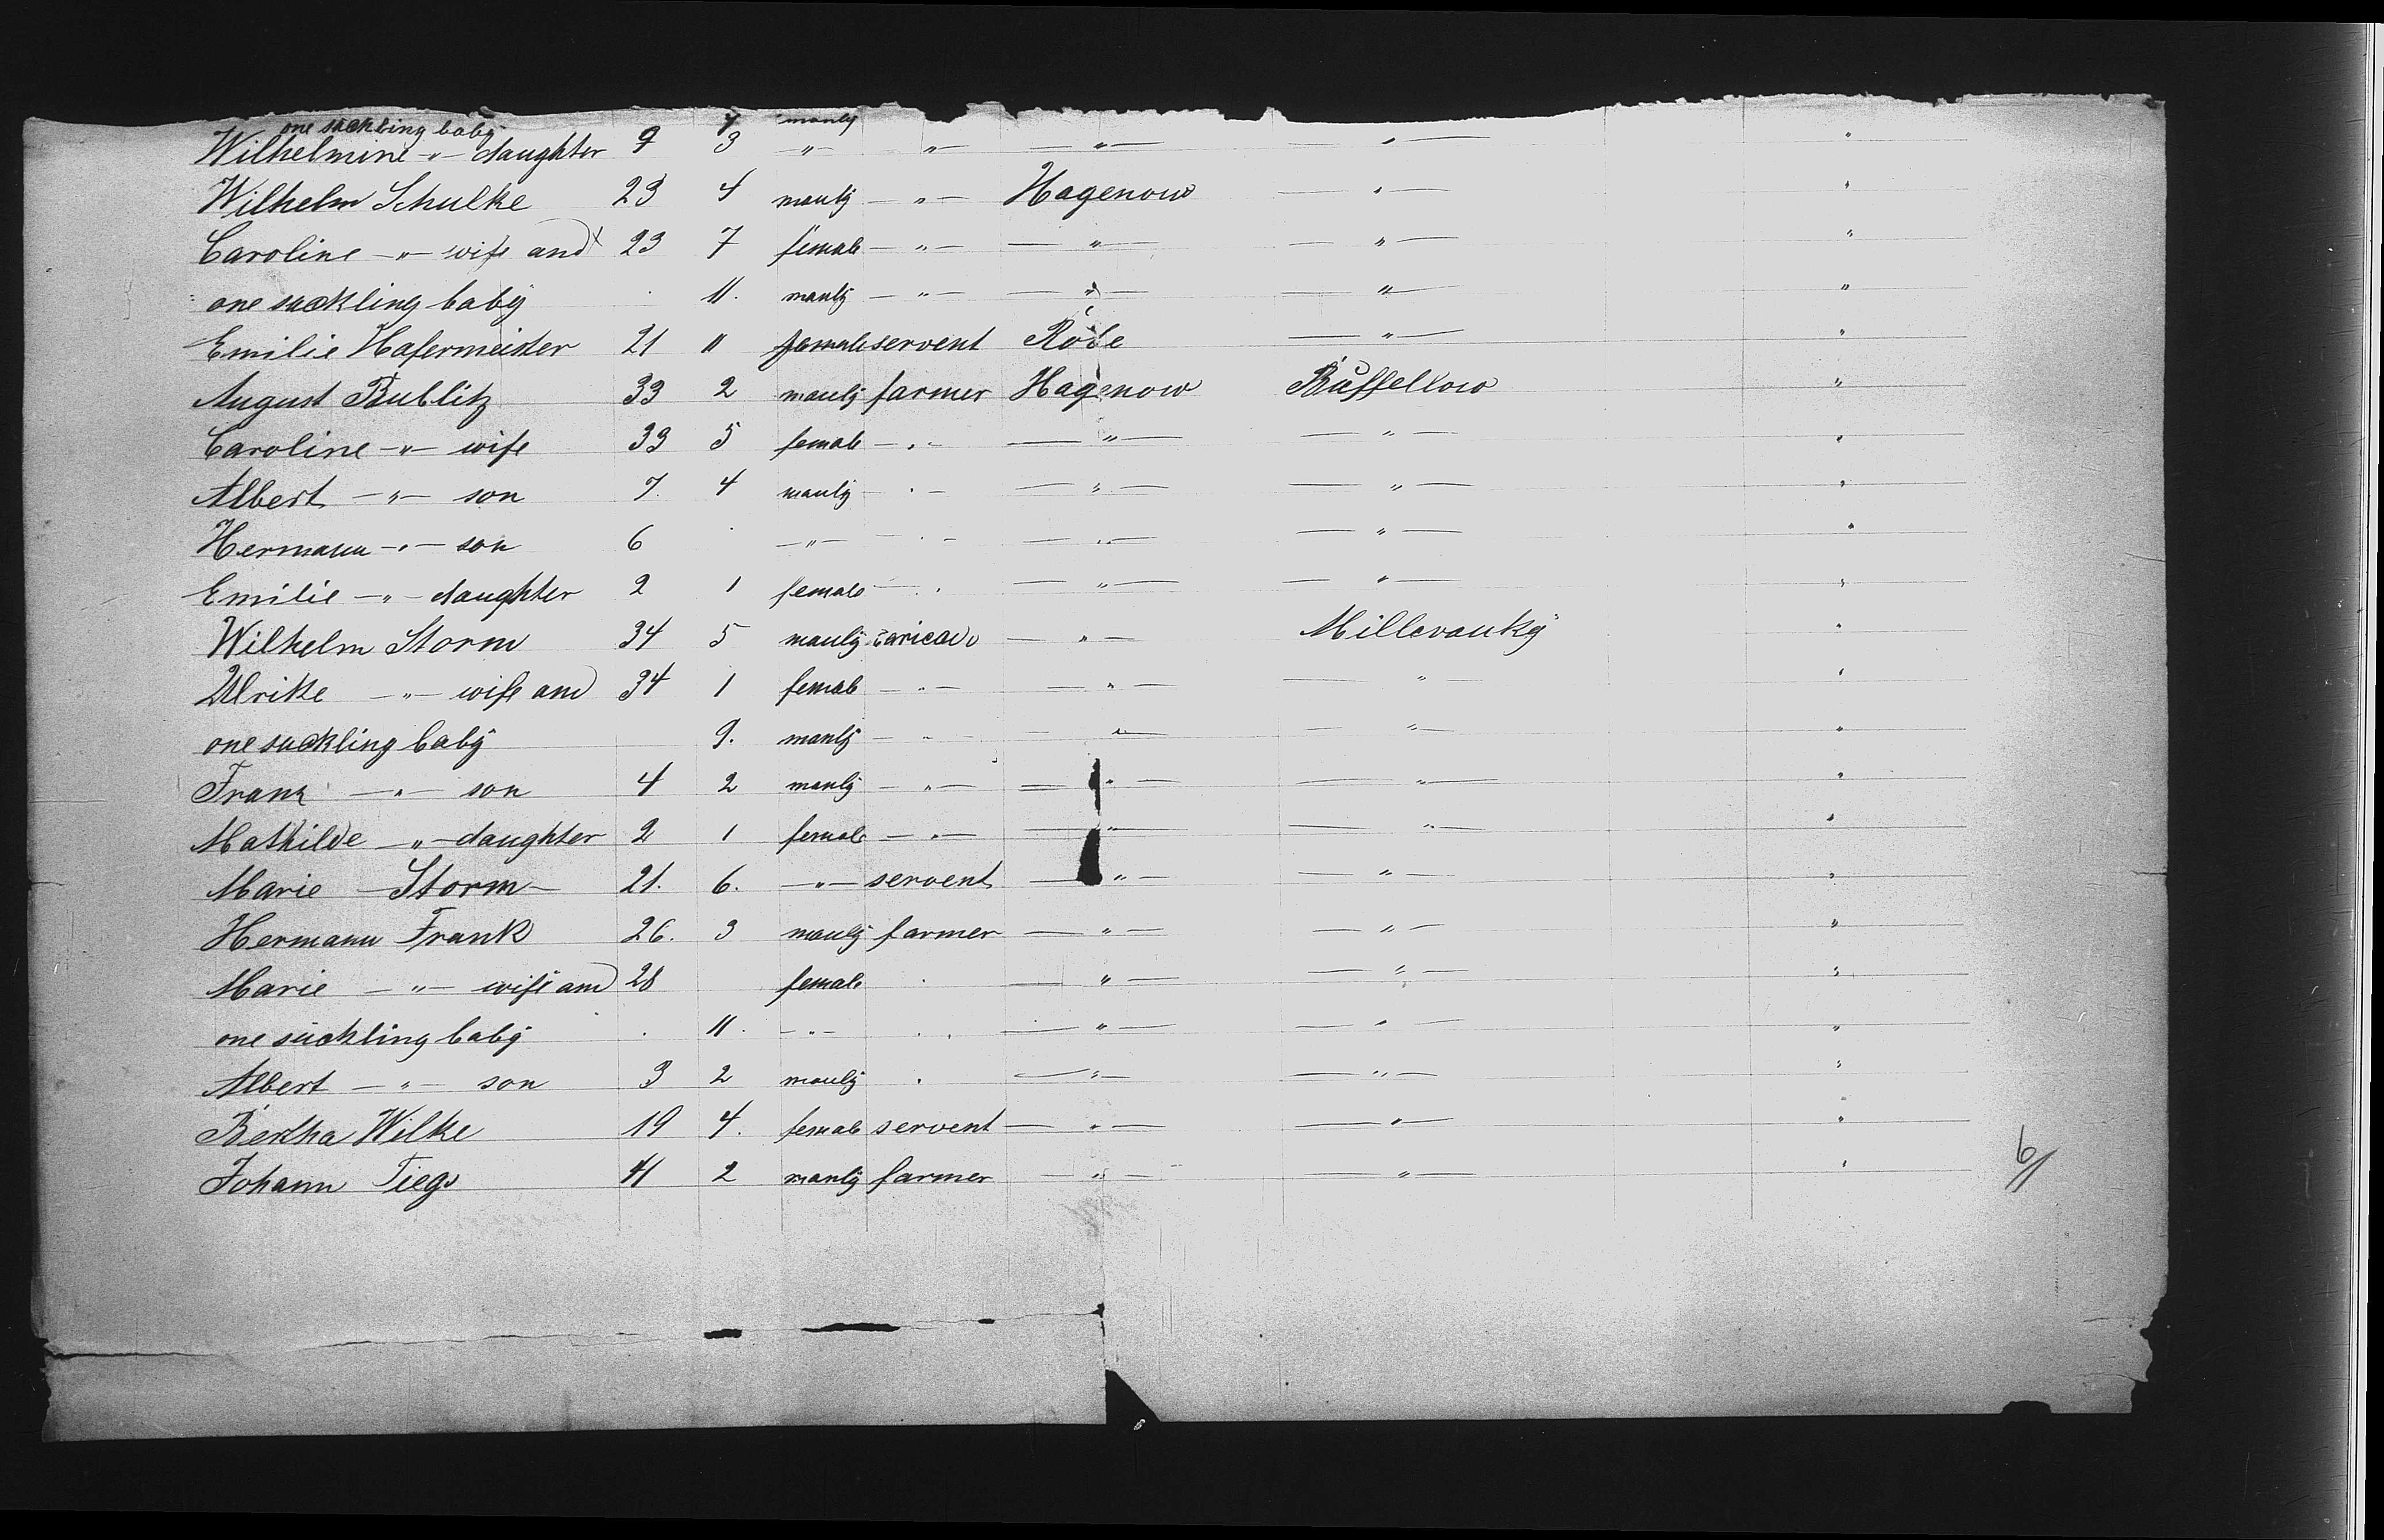 one suckling baby 7 manly
Wilhelmine -"- daughter 9 3 -"- -"- -"- -"- "
Wilhelm Schulke 23 4 manly -"- Hagenow -"- "
Caroline -"- wife and 23 7 female -"- -"- -"- "
one suckling baby 11. manly -"- -"- -"- "
Emilie Hafermeister 21 11 female servent -"- "
August Bublitz 33 2 manly farmer Hagenow Buffellow "
Caroline -"- wife 33 5 female -"- -"- -"- "
Albert -"- son 7. 4 manly -"- -"- -"- "
Hermann -"- son 6 -"- -"- -"- -"- "
Emilie -"- daughter 2 1 female -"- -"- -"- "
Wilhelm Storm 34 5 manly -"- Millevauky "
Ulrike -"- wife and 34 1 female -"- -"- -"- "
one suckling baby 9. manly -"- -"- -"- "
Franz -"- son 4 2 manly -"- -"- -"- "
Mathilde -"- daughter 2 1 female -"- -"- -"- "
Marie Storm 21. 6. -"- servent -"- -"- "
Hermann Frank 26. 3 manly farmer -"- -"- "
Marie -"- wife and 28 female -"- -"- "
one suckling baby 11. -"- -"- -"- "
Albert -"- son 3 2 manly -"- -"- "
Bertha Wilke 19 4. female servent -"- -"- "
Johann Tiegs 41 2 manly farmer -"- -"- "
6/1